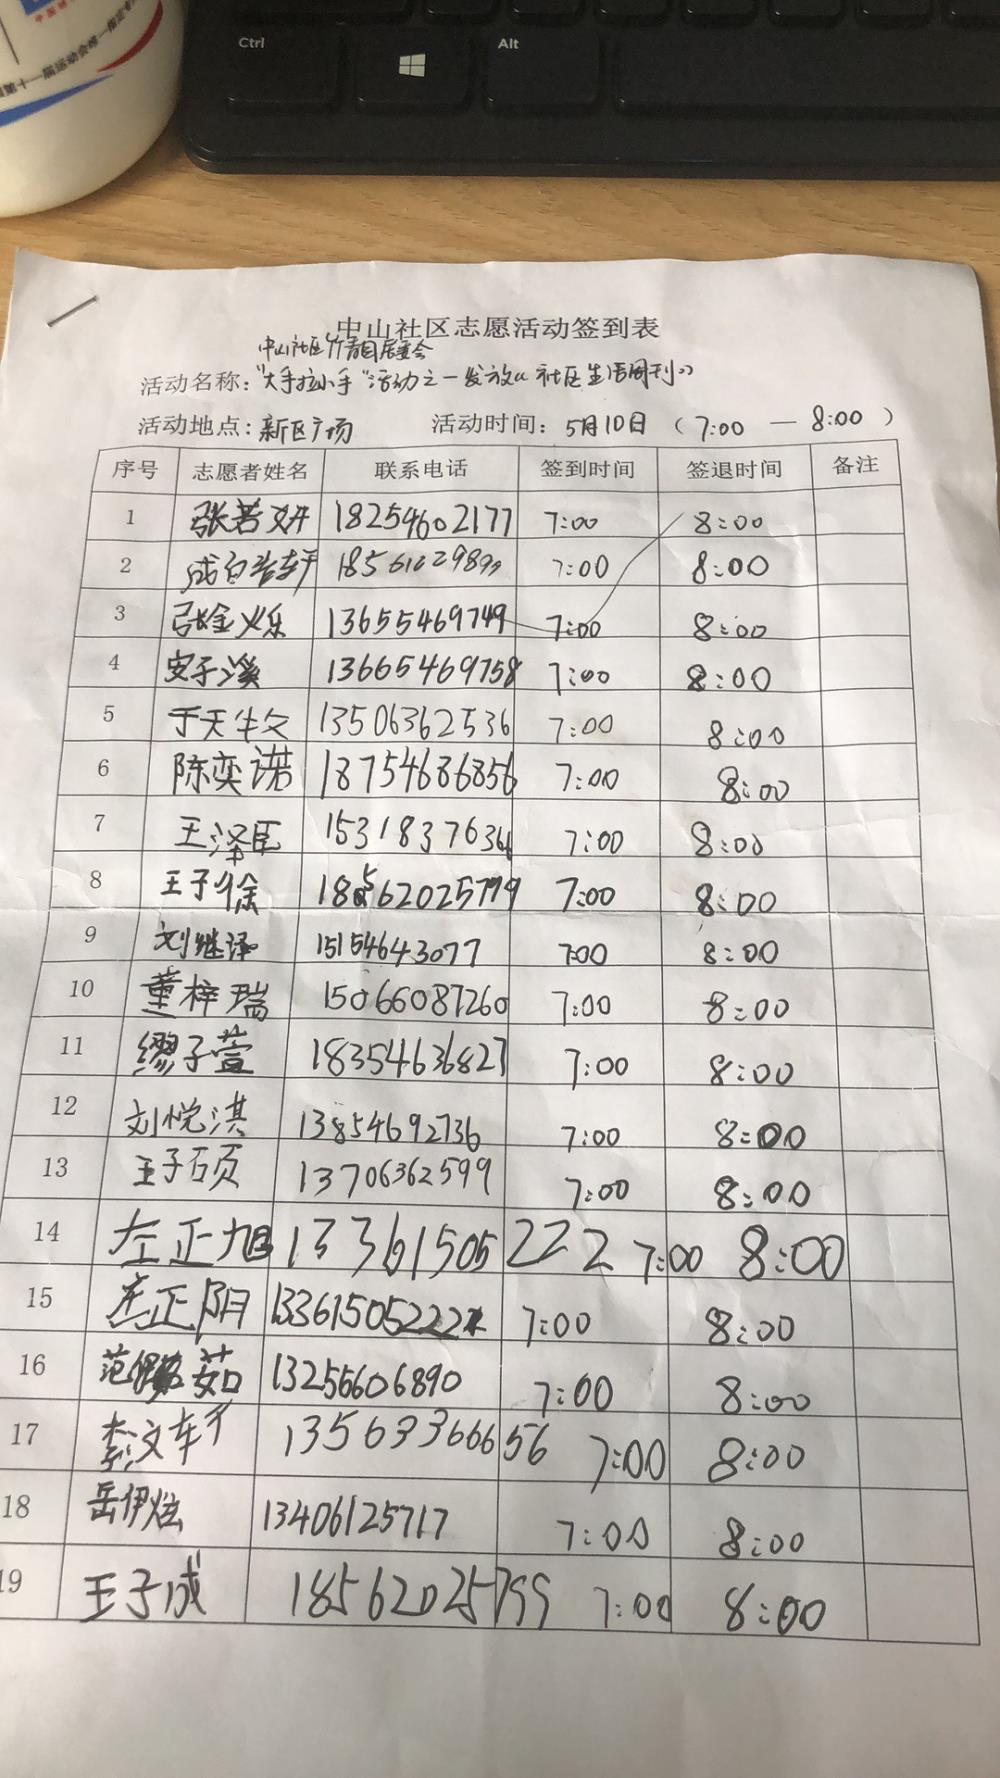 Ctrl
Alt
中山社区志愿活动签到表
中山社区 居委会
活动名称："大手拉小手"活动之一发放《社区生活周刊》
活动地点：新区广场 活动时间：5月10日（7:00 — 8:00）
序号 志愿者姓名 联系电话 签到时间 签退时间 备注
1 张若妍 18254602177 7:00 8:00
2 7:00 8:00
3 张金义乐 13655469749 7:00 8:00
4 安子溪 13665469758 7:00 8:00
5 于天牧 13506362536 7:00 8:00
6 陈奕诺 18754686856 7:00 8:00
7 王泽臣 15318376366 7:00 8:00
8 王子徐 18562025799 7:00 8:00
9 刘继泽 15154643077 7:00 8:00
10 董梓瑞 15066087260 7:00 8:00
11 缪子萱 18354636827 7:00 8:00
12 刘悦淇 13854692736 7:00 8:00
13 王子硕 13706362599 7:00 8:00
14 左正旭 13361505222 7:00 8:00
15 左正阳 13361505222 7:00 8:00
16 范 茹 13256606890 7:00 8:00
17 李文轩 13563366656 7:00 8:00
18 岳伊炫 13406125717 7:00 8:00
19 王子成 18562025799 7:00 8:00